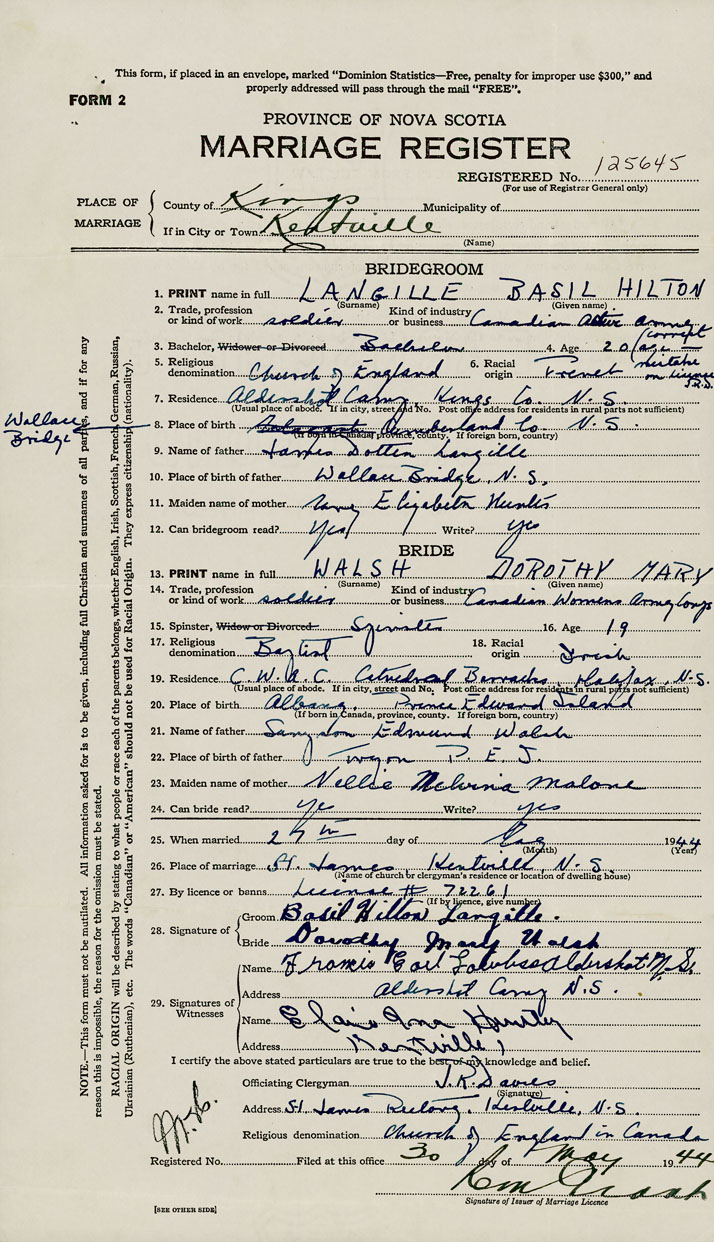 This form, if placed in an envelope, marked "Dominion Statistics—Free, penalty for improper use $300," and
properly addressed will pass through the mail "FREE".
FORM 2
PROVINCE OF NOVA SCOTIA
MARRIAGE REGISTER
REGISTERED No. 125645
(For use of Registrar General only)
PLACE OF MARRIAGE
County of Kings Municipality of
If in City or Town Kentville
(Name)
BRIDEGROOM
1. PRINT name in full LANGILLE BASIL HILTON
(Surname) (Given name)
2. Trade, profession or kind of work soldier Kind of industry or business Canadian Active Army
3. Bachelor, Widower or Divorced Bachelor 4. Age 20 (correct age — mistake on license J.R.D.
5. Religious denomination Church of England 6. Racial origin French
7. Residence Aldershot Camp, Kings Co. N.S.
(Usual place of abode. If in city, street and No. Post office address for residents in rural parts not sufficient)
Wallace Bridge
8. Place of birth Cumberland Co. N.S.
(If born in Canada, province, county. If foreign born, country)
9. Name of father James Langille
10. Place of birth of father Wallace Bridge, N.S.
11. Maiden name of mother Elizabeth
12. Can bridegroom read? Yes Write? yes
BRIDE
13. PRINT name in full WALSH DOROTHY MARY
(Surname) (Given name)
14. Trade, profession or kind of work soldier Kind of industry or business Canadian Womens Army Corps
15. Spinster, Widow or Divorced Spinster 16. Age 19
17. Religious denomination Baptist 18. Racial origin Irish
19. Residence C.W.A.C. Cathedral Barracks, Halifax, N.S.
(Usual place of abode. If in city, street and No. Post office address for residents in rural parts not sufficient)
20. Place of birth Albany, Prince Edward Island
(If born in Canada, province, county. If foreign born, country)
21. Name of father Edmund Walsh
22. Place of birth of father Tryon P.E.I.
23. Maiden name of mother Nellie Melvina Malone
24. Can bride read? yes Write? yes
25. When married 27th day of 1944
(Month) (Year)
26. Place of marriage St. James, Kentville, N.S.
(Name of church or clergyman's residence or location of dwelling house)
27. By licence or banns License # 72261
(If by licence, give number)
28. Signature of
Groom Basil Hilton Langille.
Bride Dorothy Mary Walsh
29. Signatures of Witnesses
Name Francis Earl Aldershot N.S.
Address Aldershot Camp N.S.
Name Ina
Address Kentville
I certify the above stated particulars are true to the best of my knowledge and belief.
Officiating Clergyman J.R. Davies
(Signature)
Address St. James Rectory, Kentville, N.S.
Religious denomination Church of England in Canada
Registered No. Filed at this office 30 day of May 1944
Signature of Issuer of Marriage Licence
[SEE OTHER SIDE]
NOTE.—This form must not be mutilated. All information asked for is to be given, including full Christian and surnames of all parties, and if for any
reason this is impossible, the reason for the omission must be stated.
RACIAL ORIGIN will be described by stating to what people or race each of the parents belongs, whether English, Irish, Scottish, French, German, Russian,
Ukrainian (Ruthenian), etc. The words "Canadian" or "American" should not be used for Racial Origin. They express citizenship (nationality).